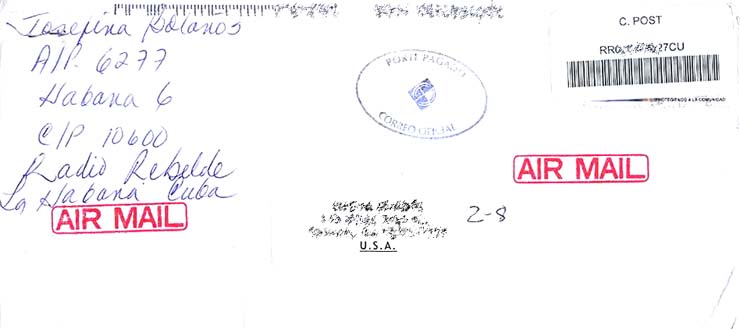 Josefina Bolaños
A/P. 6277
Habana 6
C/P 10600
Radio Rebelde
La Habana Cuba
AIR MAIL
PORTE PAGADO
CORREO OFICIAL
C. POST
PROTEGIENDO A LA COMUNIDAD
AIR MAIL
2-8
U.S.A.